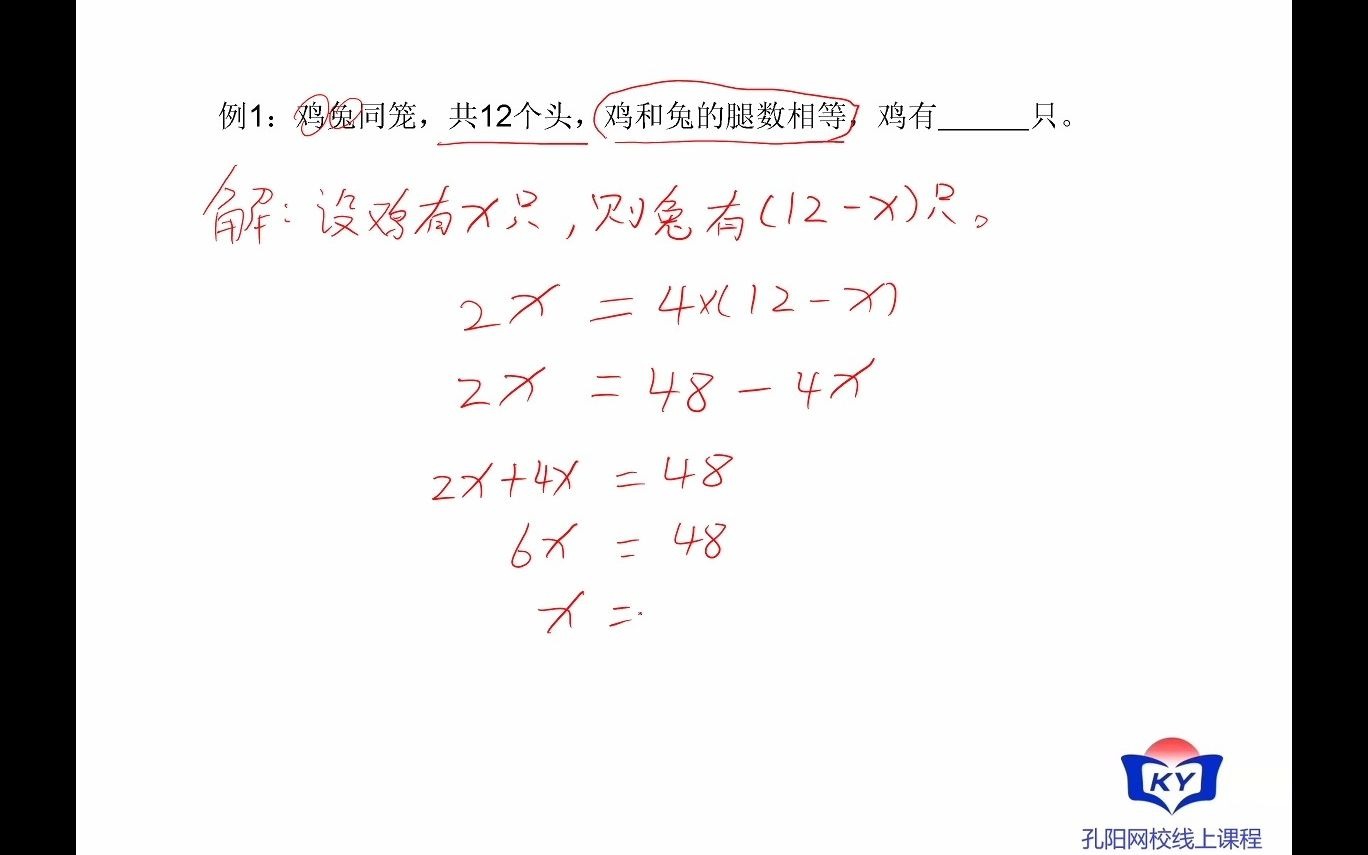 例1：鸡兔同笼，共12个头，鸡和兔的腿数相等，鸡有______只。
解：设鸡有x只，则兔有(12-x)只。
2x = 4×(12-x)
2x = 48-4x
2x+4x = 48
6x = 48
x =
KY
孔阳网校线上课程